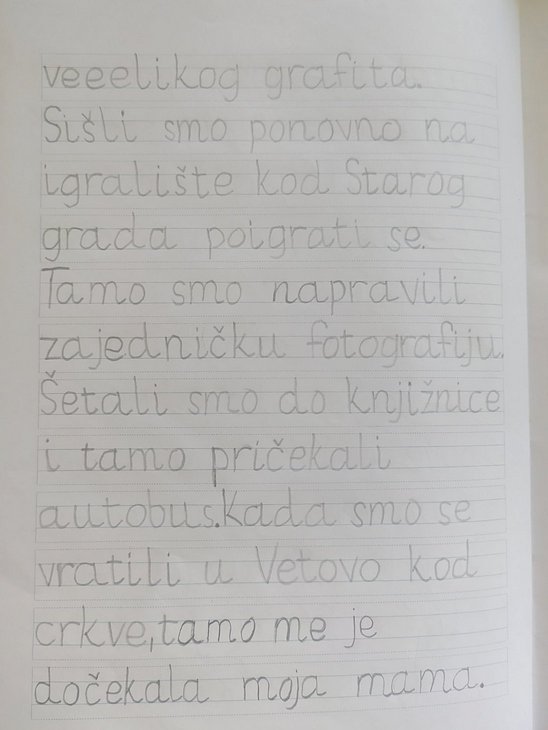 veeelikog grafita.
Sišli smo ponovno na
igralište kod Starog
grada poigrati se.
Tamo smo napravili
zajedničku fotografiju.
Šetali smo do knjižnice
i tamo pričekali
autobus.Kada smo se
vratili u Vetovo kod
crkve,tamo me je
dočekala moja mama.